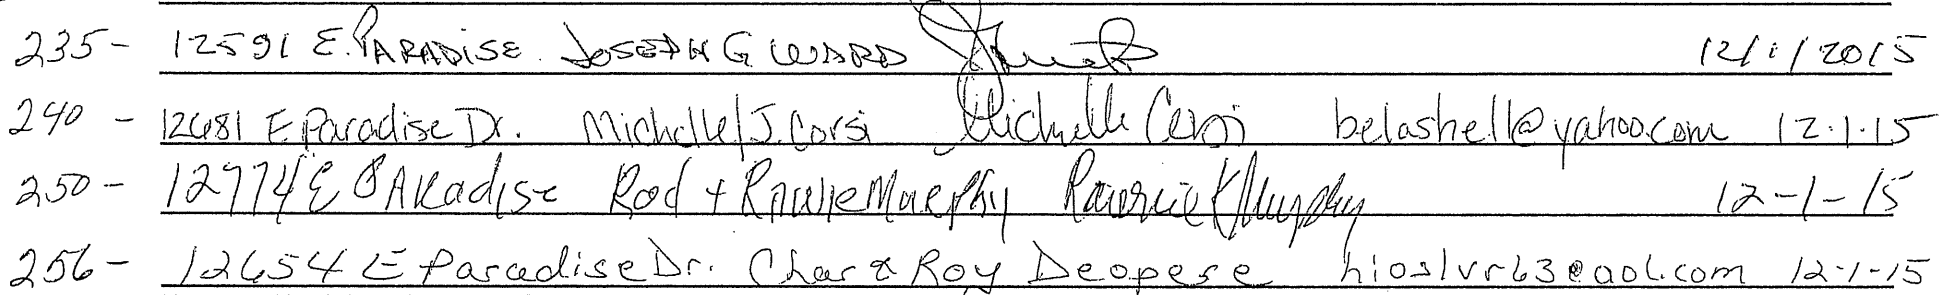 235- 12591 E. PARADISE JOSEPH G WARD 12/1/2015
240 - 12681 E Paradise Dr. Michelle J. Corsi Michelle Corsi belashell@yahoo.com 12.1.15
250 - 12774 E PARadise Rod + Murphy Murphy 12-1-15
256- 12654 E Paradise Dr. Char & Roy Deopere hioslvr63@aol.com 12-1-15